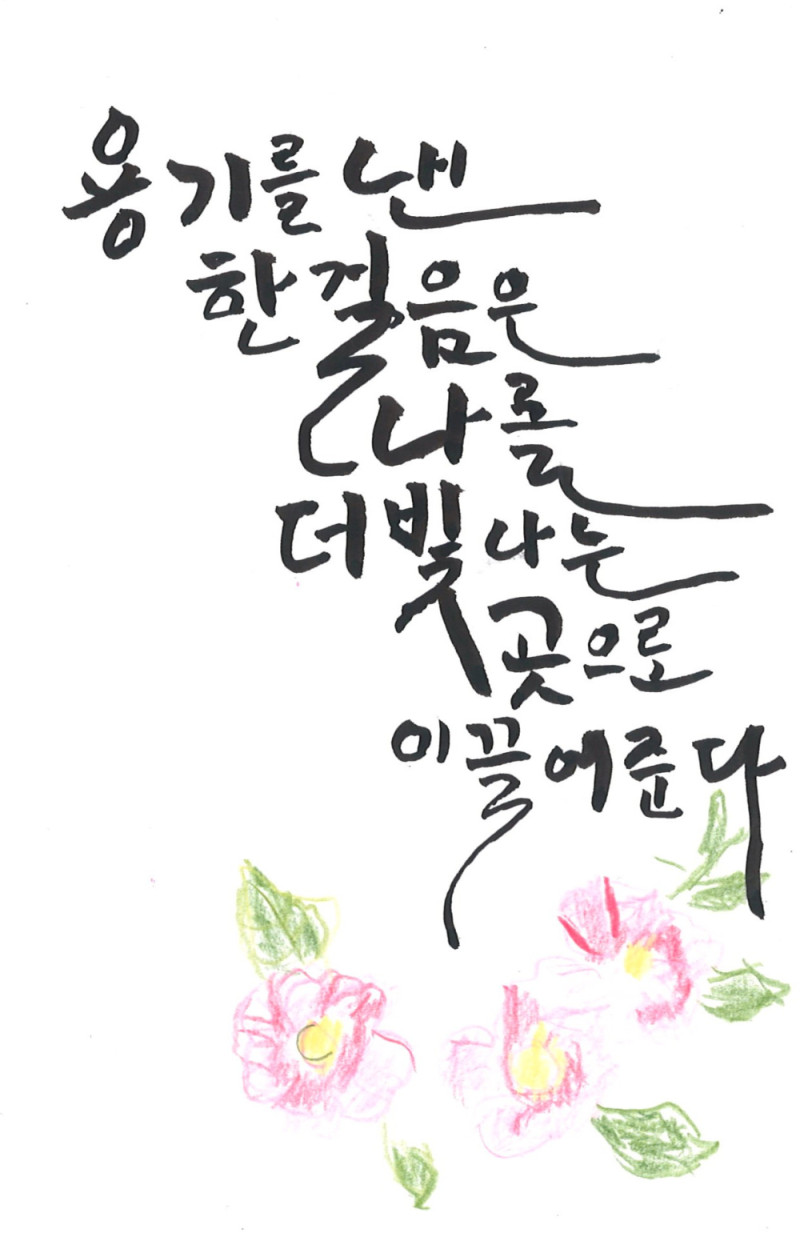 용기를 낸
한걸음은
나를
더 빛나는
곳으로
이끌어준다